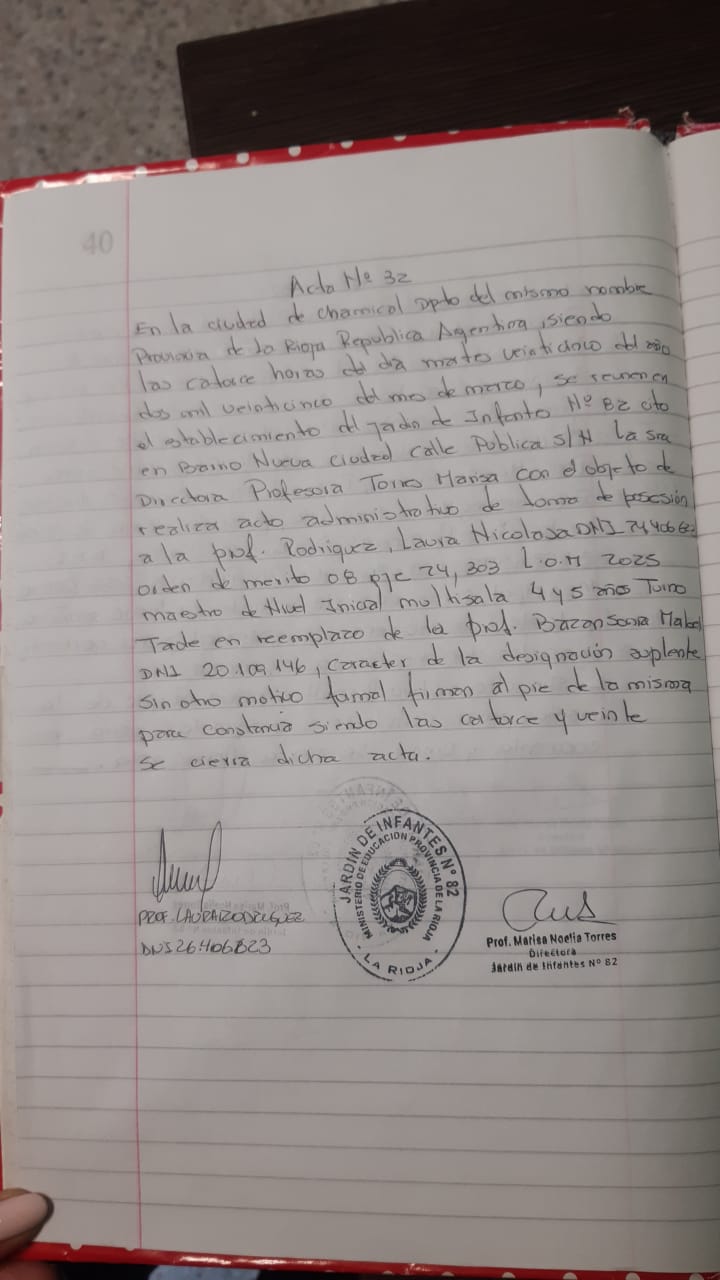 40
Acta Nº 32
En la ciudad de Chamical Dpto del mismo nombre
Provincia de La Rioja Republica Argentina, siendo
las catorce horas del día martes veinticinco del año
dos mil veinticinco del mes de marzo, se reunen en
el establecimiento del Jardin de Infante Nº 82 cito
en Barrio Nueva ciudad calle Publica S/N La Sra
Directora Profesora Torres Marisa con el objeto de
realiza acto administrativo de toma de posesión
a la prof. Rodriguez, Laura Nicolasa DNI
Orden de merito 08 pje 24,303 L.O.M 2025
maestro de Nivel Inicial multisala 4 y 5 años Turno
Tarde en reemplazo de la prof. Bazan Sonia Mabel
DNI 20.109.146, Caracter de la designación suplente
Sin otro motivo formal firman al pie de la misma
para constancia siendo las catorce y veinte
se cierra dicha acta.
PROF. LAURA RODRIGUEZ
DNI 26.406.823
JARDIN DE INFANTES Nº 82
MINISTERIO DE EDUCACION PROVINCIA DE LA RIOJA
· LA RIOJA ·
Prof. Marisa Noelia Torres
Directora
Jardín de Infantes Nº 82